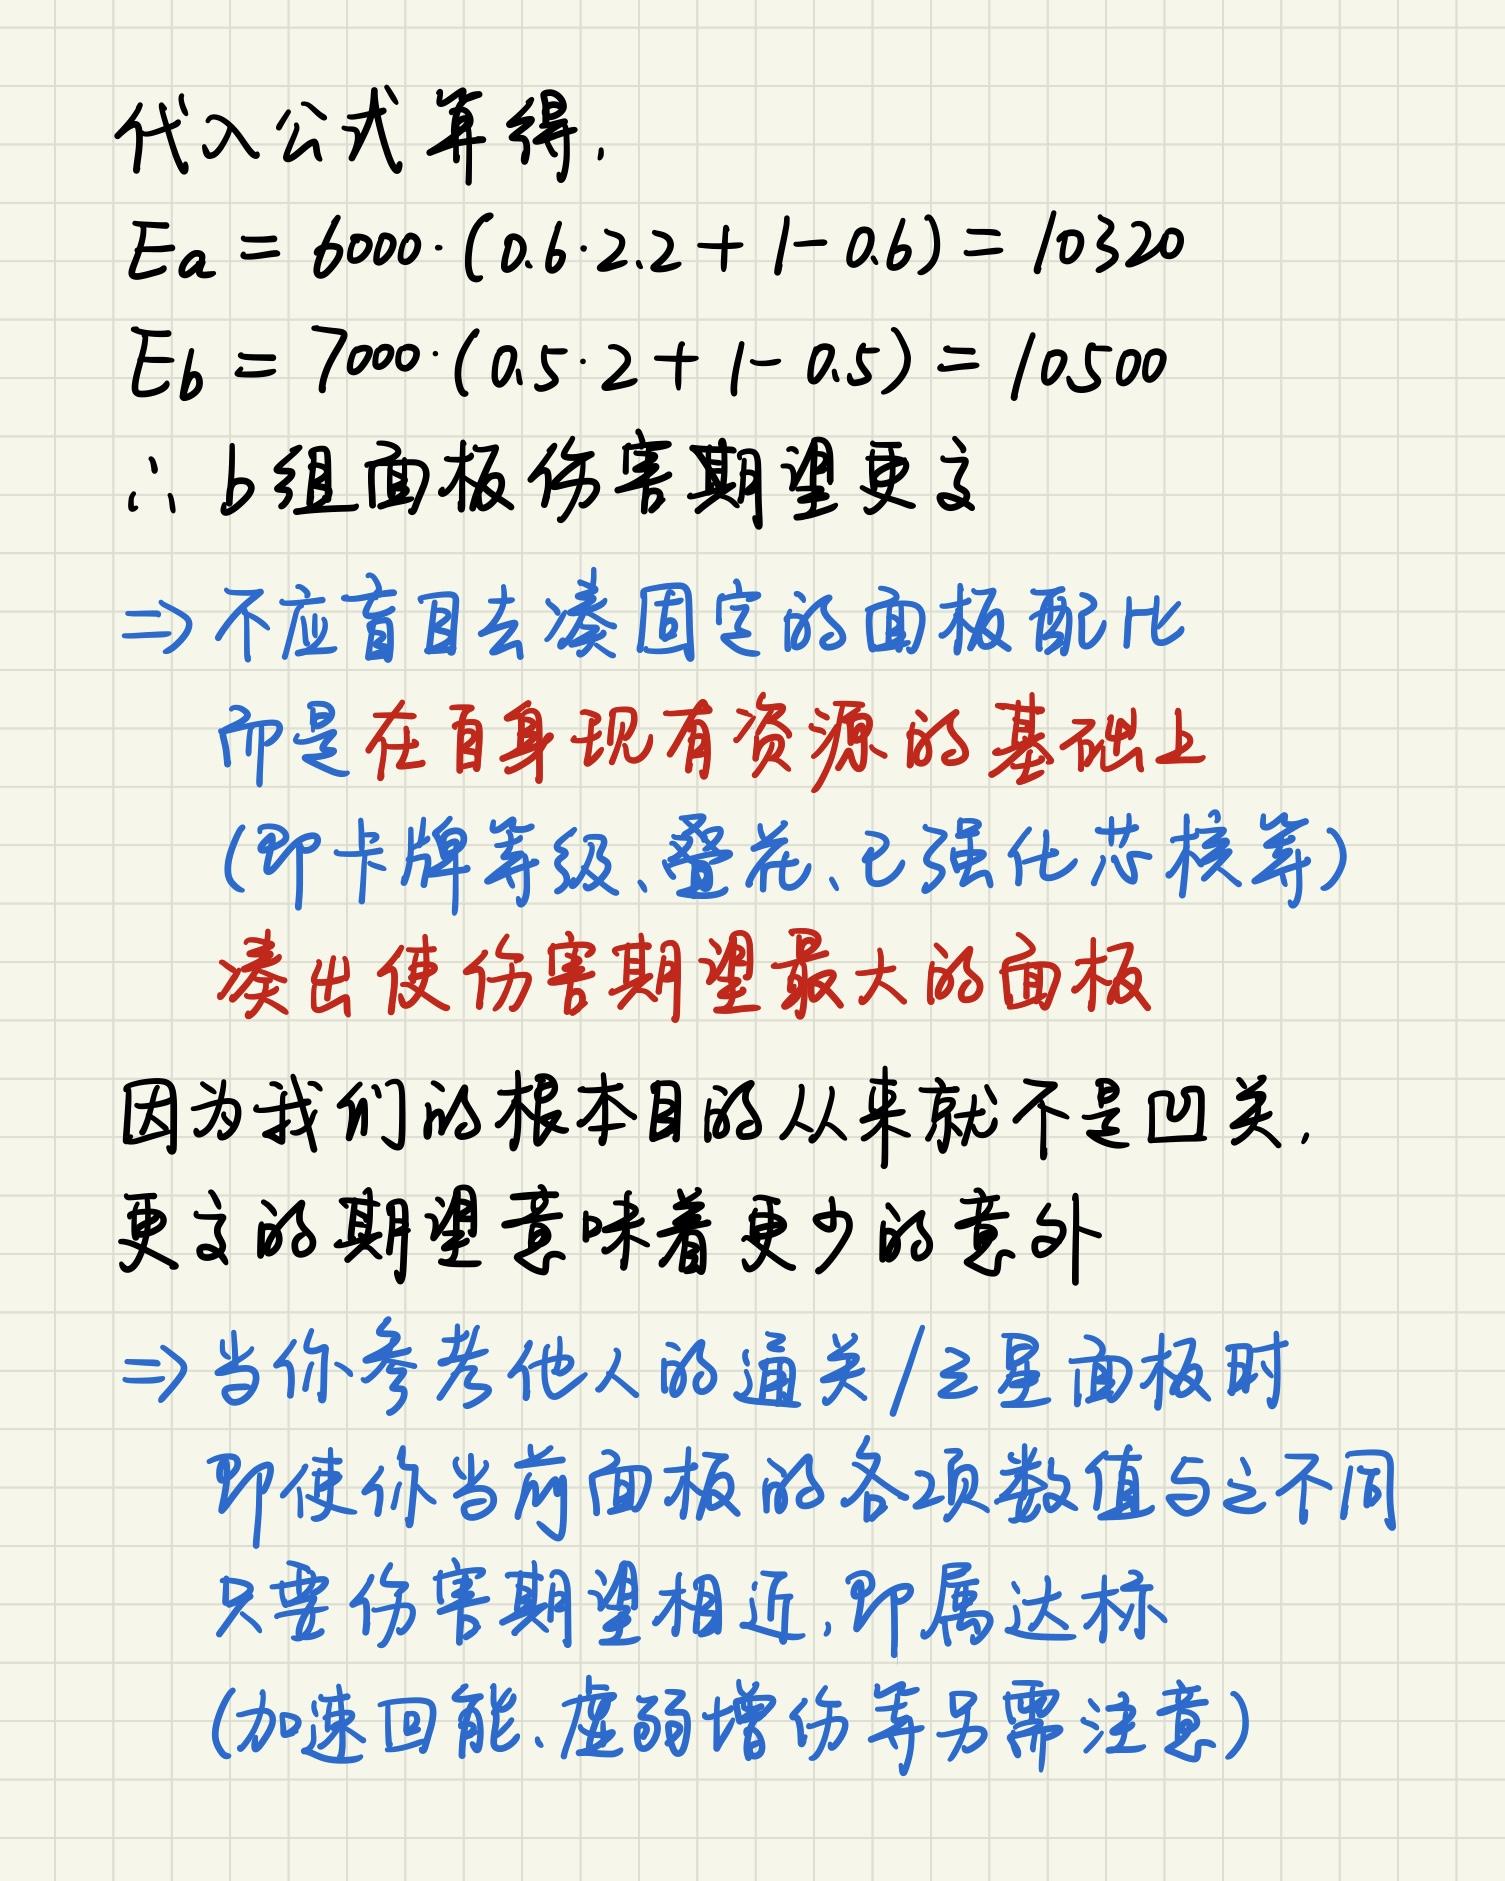 代入公式算得,
Ea = 6000·(0.6·2.2+1-0.6) = 10320
Eb = 7000·(0.5·2+1-0.5) = 10500
∴ b组面板伤害期望更高
⇒ 不应盲目去凑固定的面板配比
而是在自身现有资源的基础上
(即卡牌等级、叠花、已强化芯核等)
凑出使伤害期望最大的面板
因为我们的根本目的从来就不是凹关,
更高的期望意味着更少的意外
⇒ 当你参考他人的通关/三星面板时
即使你当前面板的各项数值与之不同
只要伤害期望相近,即属达标
(加速回能、虚弱增伤等另需注意)